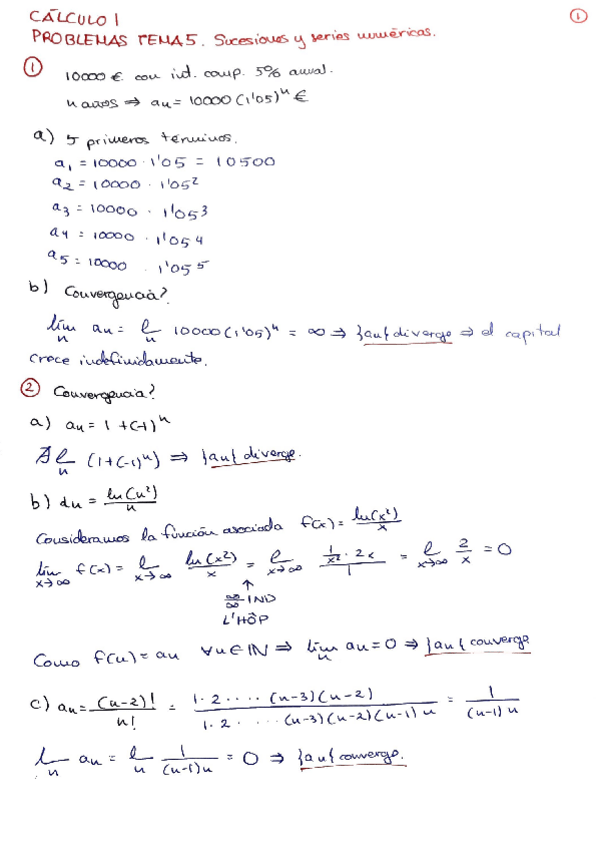 CÁLCULO I
①
PROBLEMAS TEMA 5. Sucesiones y series numéricas.
① 10000 € con int. comp. 5% anual.
n años ⇒ an = 10000 (1'05)^n €
a) 5 primeros términos.
a₁ = 10000 · 1'05 = 10500
a₂ = 10000 · 1'05²
a₃ = 10000 · 1'05³
a₄ = 10000 · 1'05⁴
a₅ = 10000 · 1'05⁵
b) Convergencia?
lím_n an = l_n 10000 (1'05)^n = ∞ ⇒ {an} diverge ⇒ el capital
crece indefinidamente.
② Convergencia?
a) an = 1 + (-1)^n
∄ l_n (1+(-1)^n) ⇒ {an} diverge.
b) dn = ln(n²)/n
Consideramos la función asociada f(x) = ln(x²)/x
lím_{x→∞} f(x) = l_{x→∞} ln(x²)/x = l_{x→∞} (1/x² · 2x)/1 = l_{x→∞} 2/x = 0
↑
∞/∞ IND
L'HÔP
Como f(n) = an ∀n∈ℕ ⇒ lím_n an = 0 ⇒ {an} converge
c) an = (n-2)!/n! = 1·2·...·(n-3)(n-2)/1·2·...·(n-3)(n-2)(n-1)n = 1/(n-1)n
l_n an = l_n 1/(n-1)n = 0 ⇒ {an} converge.